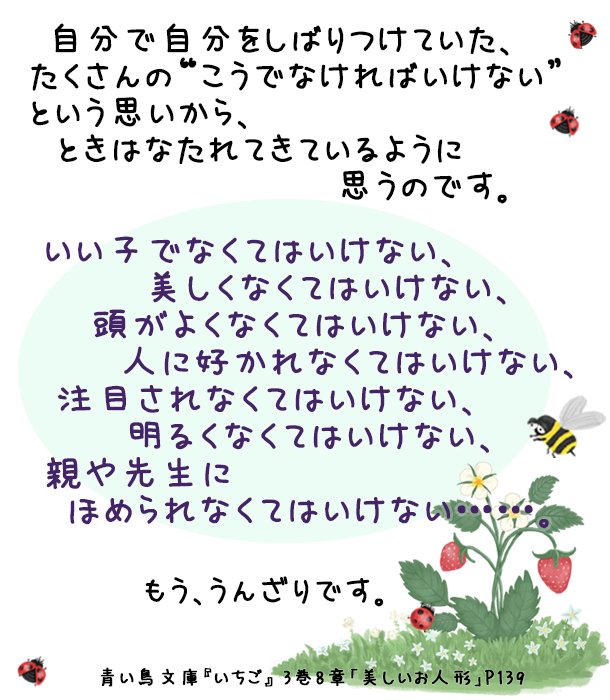 自分で自分をしばりつけていた、
たくさんの“こうでなければいけない”
という思いから、
ときはなたれてきているように
思うのです。
いい子でなくてはいけない、
美しくなくてはいけない、
頭がよくなくてはいけない、
人に好かれなくてはいけない、
注目されなくてはいけない、
明るくなくてはいけない、
親や先生に
ほめられなくてはいけない……。
もう、うんざりです。
青い鳥文庫『いちご』3巻8章「美しいお人形」P139